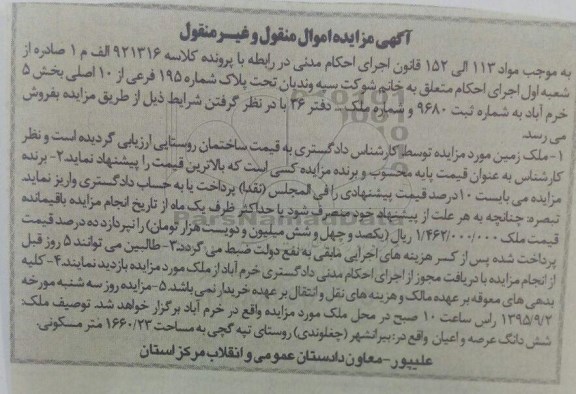 آگهی مزایده اموال منقول و غیر منقول
به موجب مواد ۱۱۳ الی ۱۵۲ قانون اجرای احکام مدنی در رابطه با پرونده کلاسه ۹۲۱۳۱۶ الف م ۱ صادره از
شعبه اول اجرای احکام متعلق به خانم شوکت سیه وندیان تحت پلاک شماره ۱۹۵ فرعی از ۱۰ اصلی بخش ۵
خرم آباد به شماره ثبت ۹۶۸۰ و شماره ملک... دفتر ۳۶ با در نظر گرفتن شرایط ذیل از طریق مزایده بفروش
می رسد.
۱- ملک زمین مورد مزایده توسط کارشناس دادگستری به قیمت ساختمان روستایی ارزیابی گردیده است و نظر
کارشناس به عنوان قیمت پایه محسوب و برنده مزایده کسی است که بالاترین قیمت را پیشنهاد نماید. ۲- برنده
مزایده می بایست ۱۰ درصد قیمت پیشنهادی را فی المجلس (نقدا) پرداخت یا به حساب دادگستری واریز نماید.
تبصره: چنانچه به هر علت از پیشنهاد خود منصرف شود یا حداکثر ظرف یک ماه از تاریخ انجام مزایده باقیمانده
قیمت ملک ۱/۴۶۲/۰۰۰/۰۰۰ ریال (یکصد و چهل و شش میلیون و دویست هزار تومان) را نپردازد ده درصد قیمت
پرداخت شده پس از کسر هزینه های اجرایی مابقی به نفع دولت ضبط می گردد. ۳- طالبین می توانند ۵ روز قبل
از انجام مزایده با دریافت مجوز از اجرای احکام مدنی دادگستری خرم آباد از ملک مورد مزایده بازدید نمایند. ۴- کلیه
بدهی های معوقه بر عهده مالک و هزینه های نقل و انتقال بر عهده خریدار نمی باشد. ۵- مزایده روز سه شنبه مورخه
۱۳۹۵/۹/۲ راس ساعت ۱۰ صبح در محل ملک مورد مزایده واقع در خرم آباد برگزار خواهد شد. توصیف ملک:
شش دانگ عرصه و اعیان واقع در: بیرانشهر (چغلوندی) روستای تپه گچی به مساحت ۱۶۶۰/۲۳ متر مسکونی.
علیپور- معاون دادستان عمومی و انقلاب مرکز استان